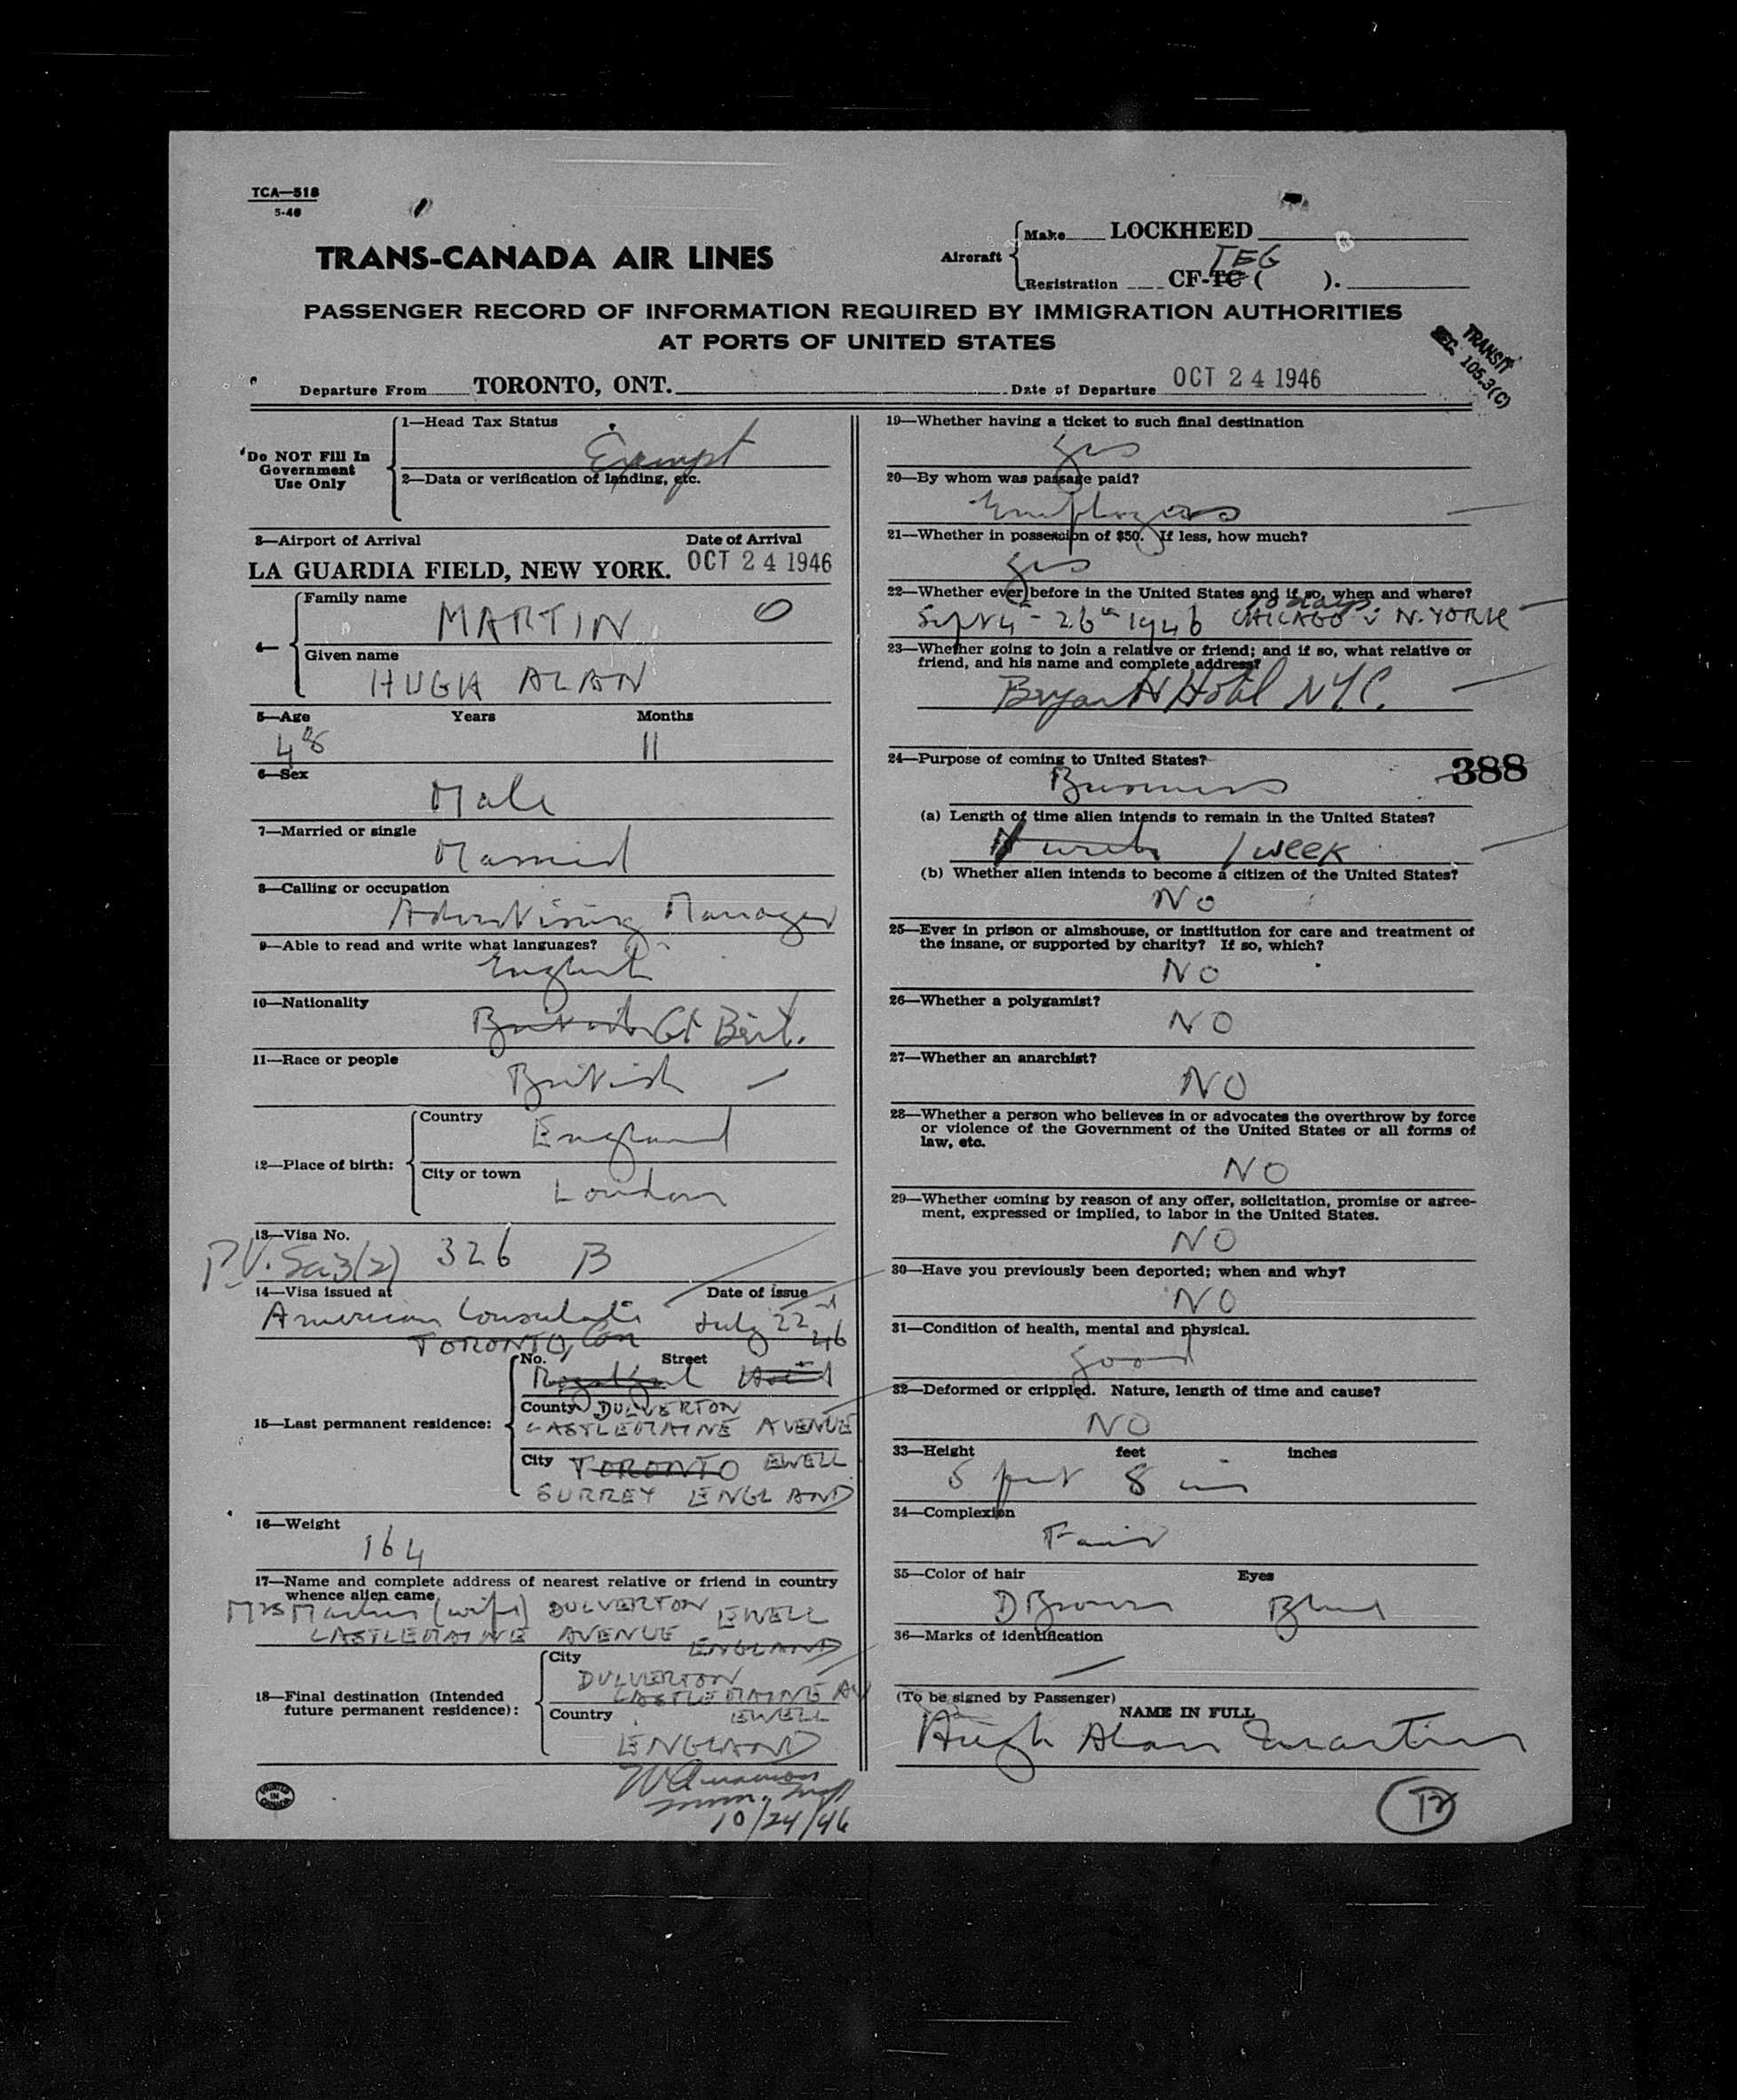 TCA—518
5-46
TRANS-CANADA AIR LINES
Aircraft
Make LOCKHEED
Registration CF-TC ( ). TEG
PASSENGER RECORD OF INFORMATION REQUIRED BY IMMIGRATION AUTHORITIES
AT PORTS OF UNITED STATES
TRANSIT
SEC. 105.3(C)
Departure From TORONTO, ONT. Date of Departure OCT 24 1946
Do NOT Fill In
Government
Use Only
1—Head Tax Status
Exempt
2—Data or verification of landing, etc.
3—Airport of Arrival Date of Arrival
LA GUARDIA FIELD, NEW YORK. OCT 24 1946
4—
Family name
MARTIN 0
Given name
HUGH ALAN
5—Age Years Months
48 11
6—Sex
Male
7—Married or single
Married
8—Calling or occupation
Advertising Manager
9—Able to read and write what languages?
English
10—Nationality
British Gt Brit.
11—Race or people
British
12—Place of birth:
Country
England
City or town
London
13—Visa No.
P.V. Sec 3(2) 326 B
14—Visa issued at Date of issue
American Consulate July 22nd
TORONTO, Can 46
15—Last permanent residence:
No. Street
Royal York Hotel
County DULVERTON
CASTLEMAINE AVENUE
City TORONTO EWELL
SURREY ENGLAND
16—Weight
164
17—Name and complete address of nearest relative or friend in country
whence alien came
Mrs Martin (wife) DULVERTON EWELL
CASTLEMAINE AVENUE ENGLAND
18—Final destination (Intended
future permanent residence):
City
DULVERTON
CASTLEMAINE AV
Country EWELL
ENGLAND
10/24/46
PRINTED
IN
CANADA
19—Whether having a ticket to such final destination
Yes
20—By whom was passage paid?
Employers
21—Whether in possession of $50. If less, how much?
Yes
22—Whether ever before in the United States and if so, when and where?
10 days
Sept 4 - 26th 1946 CHICAGO & N. YORK
23—Whether going to join a relative or friend; and if so, what relative or
friend, and his name and complete address?
Bryant Hotel NYC.
24—Purpose of coming to United States?
388
Business
(a) Length of time alien intends to remain in the United States?
1 week
(b) Whether alien intends to become a citizen of the United States?
No
25—Ever in prison or almshouse, or institution for care and treatment of
the insane, or supported by charity? If so, which?
NO
26—Whether a polygamist?
NO
27—Whether an anarchist?
NO
28—Whether a person who believes in or advocates the overthrow by force
or violence of the Government of the United States or all forms of
law, etc.
NO
29—Whether coming by reason of any offer, solicitation, promise or agree-
ment, expressed or implied, to labor in the United States.
NO
30—Have you previously been deported; when and why?
NO
31—Condition of health, mental and physical.
Good
32—Deformed or crippled. Nature, length of time and cause?
NO
33—Height feet inches
5 feet 8 ins
34—Complexion
Fair
35—Color of hair Eyes
D Brown Blue
36—Marks of identification
—
(To be signed by Passenger)
NAME IN FULL
Hugh Alan Martin